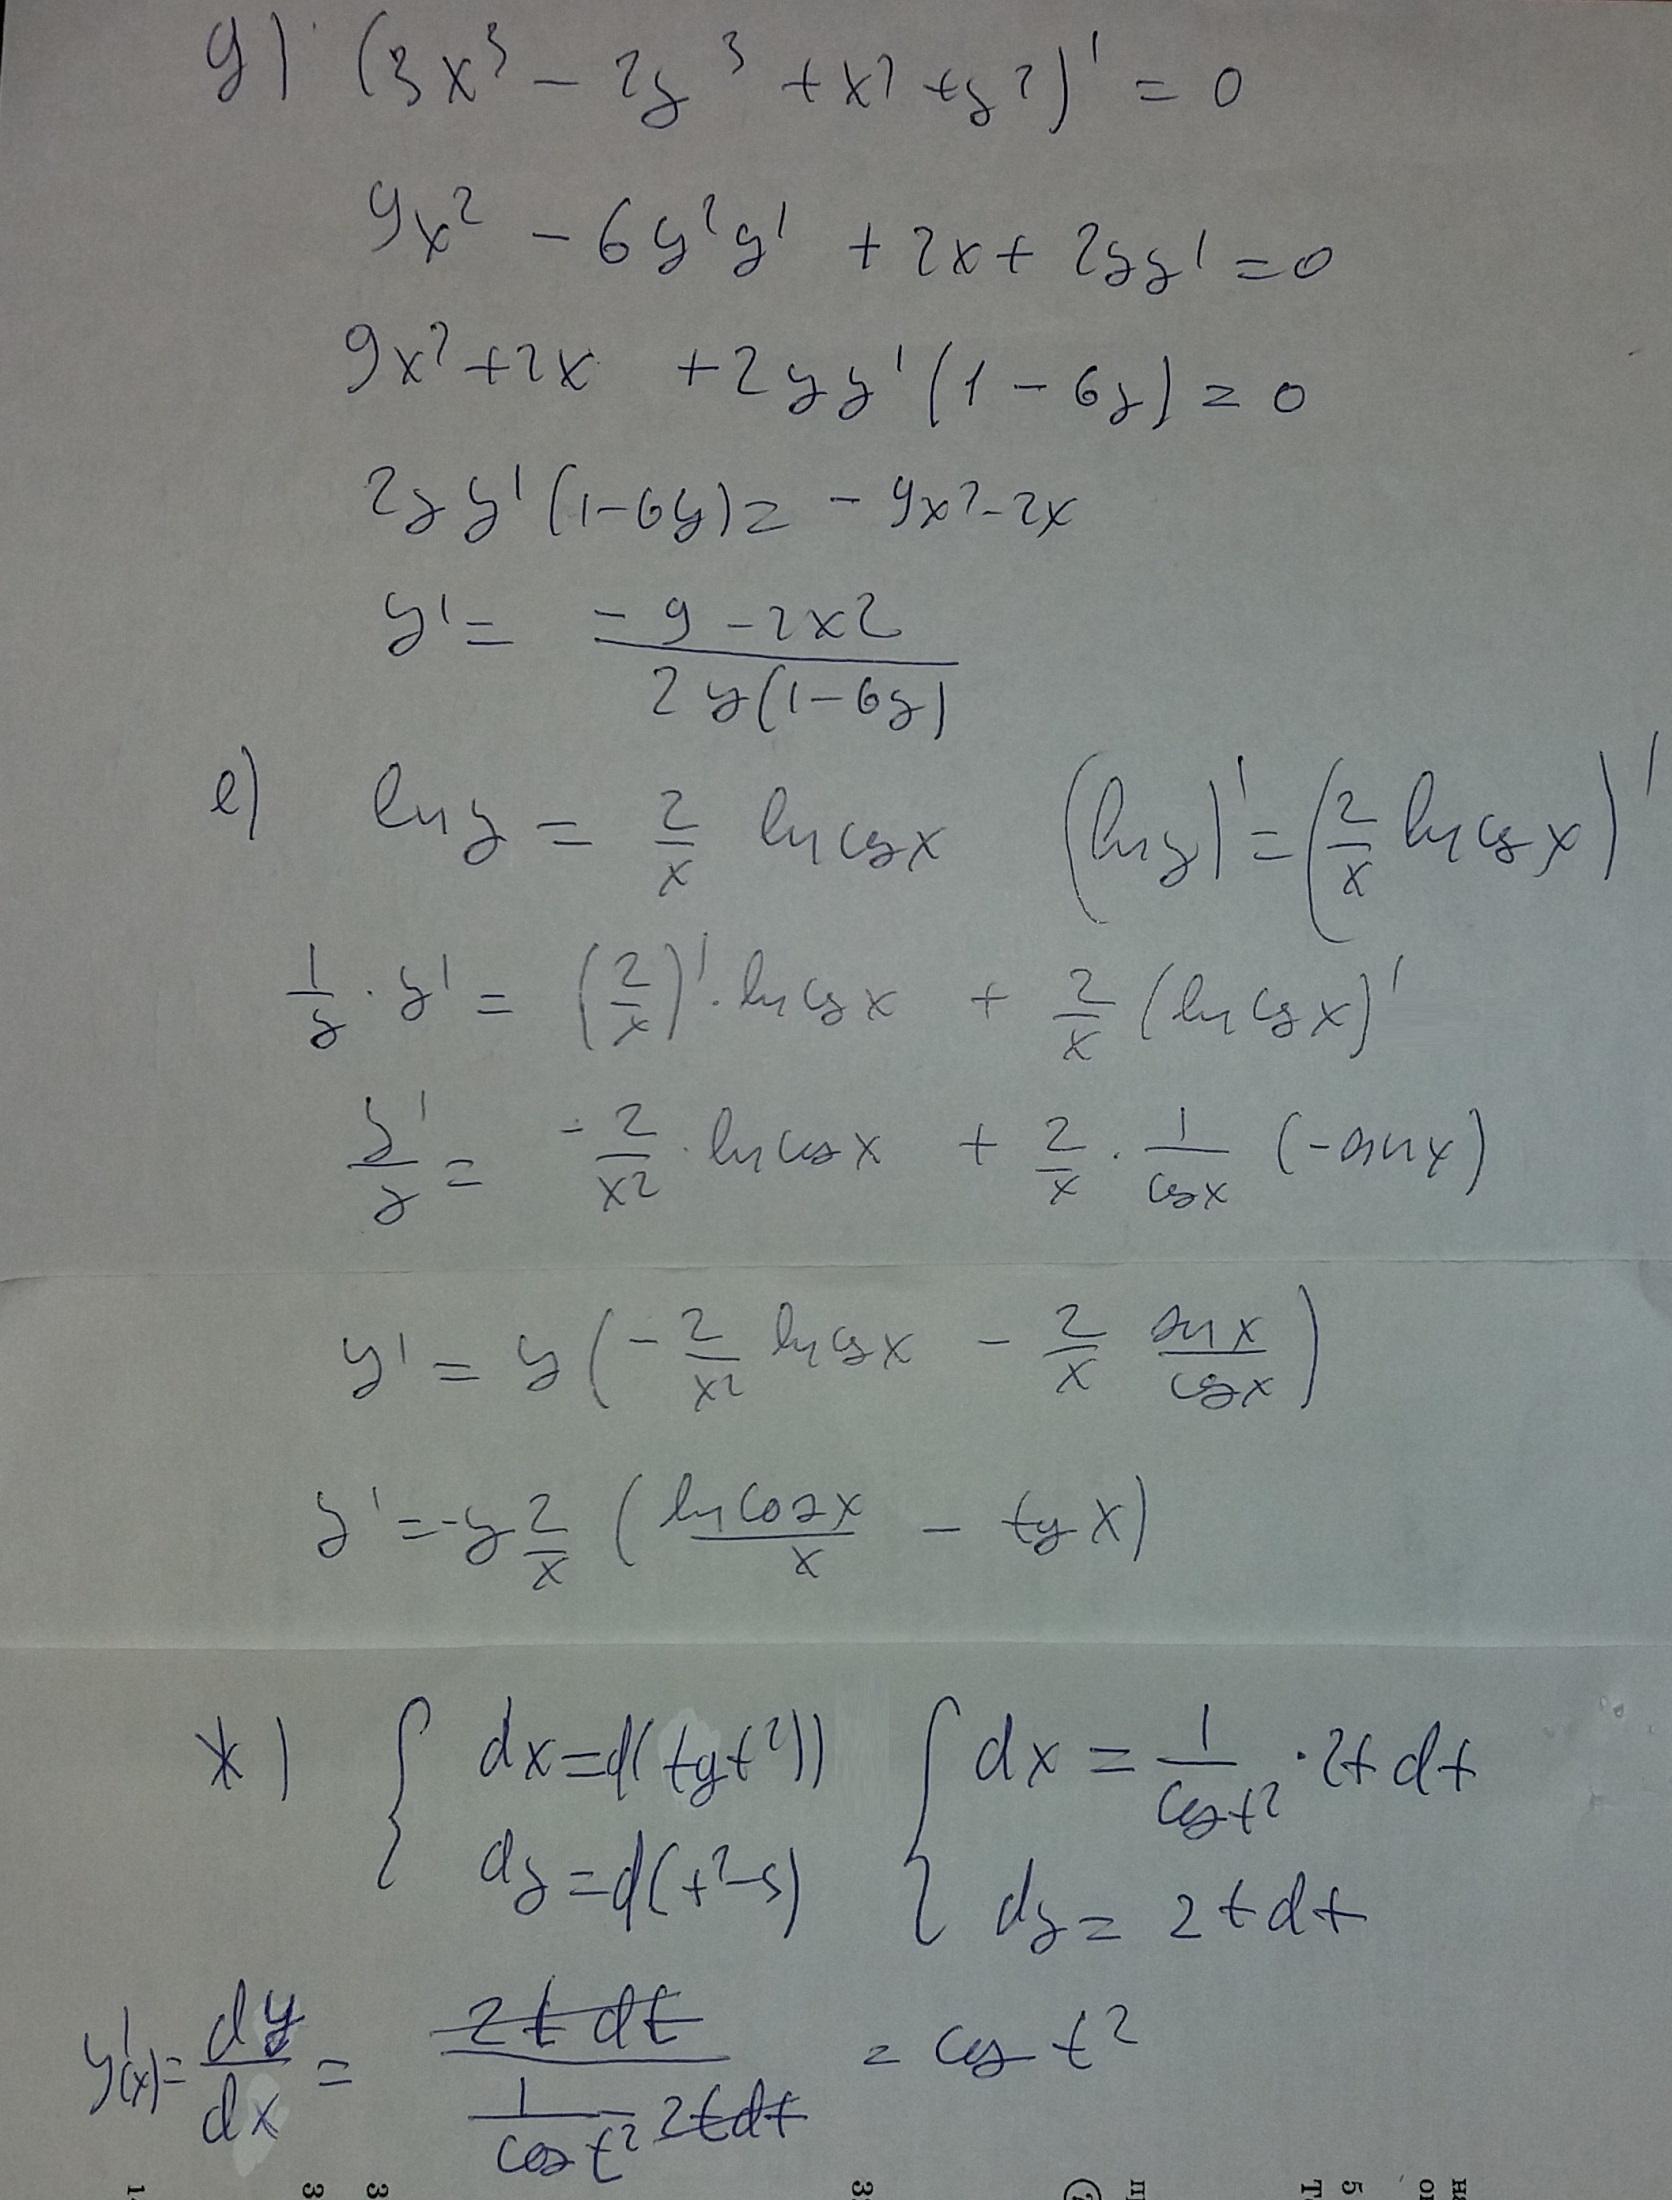 д) (3x³ - 2y³ + x² + y²)' = 0
9x² - 6y²y' + 2x + 2yy' = 0
9x² + 2x + 2yy'(1 - 6y) = 0
2yy'(1-6y) = -9x² - 2x
y' = (-9 - 2x2) / (2y(1-6y))
е) ln y = 2/x ln cos x (ln y)' = (2/x ln cos x)'
1/y · y' = (2/x)' · ln cos x + 2/x (ln cos x)'
y'/y = -2/x² · ln cos x + 2/x · 1/cos x (-sin x)
y' = y(-2/x² ln cos x - 2/x sin x/cos x)
y' = -y 2/x (ln cos x / x - tg x)
ж) { dx = d(tg t²)) { dx = 1/cos t² · 2t dt
dy = d(t²-5) dy = 2t dt
y'(x) = dy/dx = 2t dt / (1/cos t² 2t dt) = cos t²